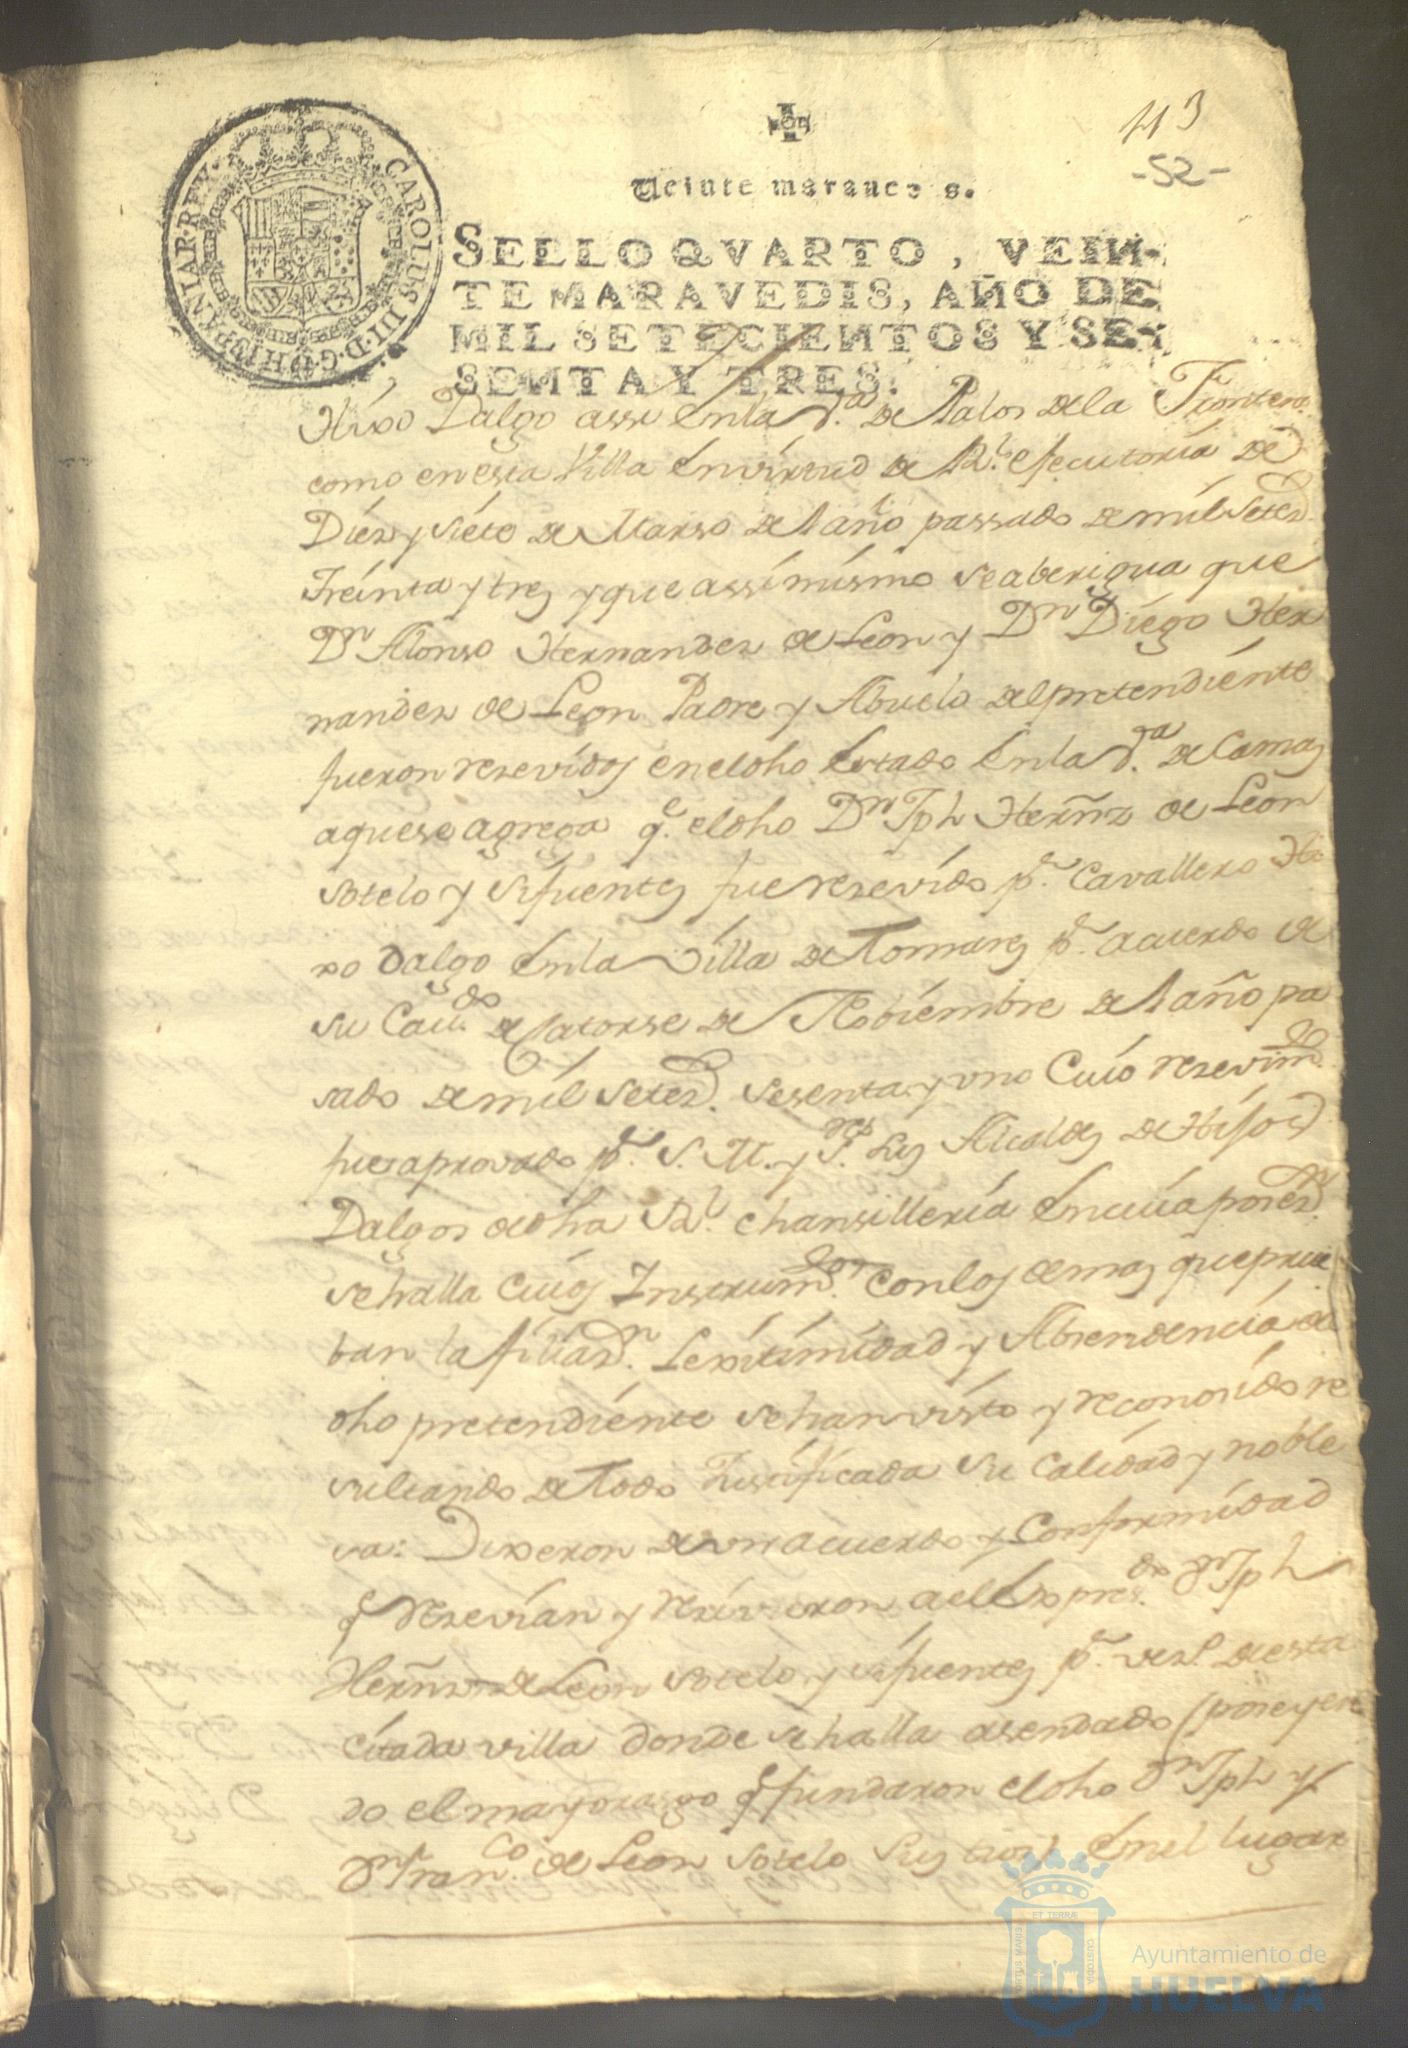 413
-52-
CAROLUS III·D·G·HISPANIAR·REX·
Veinte maraued s.
SELLO QVARTO, VEIN-
TE MARAVEDIS, AÑO DE
MIL SETECIENTOS Y SE-
SENTA Y TRES.
Hixo Dalgo assi en la V.ª de Palos de la Frontera
como en esta Villa en virtud de Rl. executoria de
Diez y siete de Marso del año passado de mil setez.
treinta y tres y que assimismo se aberigua que
Dn Alonso Hernandez de Leon y Dn Diego Her
nandez de Leon Padre y Abuelo del pretendiente
fueron resevidos en el dho estado en la V.ª de Camas
a que se agrega q.e el dho Dn Jph Hernz de Leon
sotelo y sifuentes fue resevido p.r Cavallero Hi
xo dalgo en la Villa de Tomares p.r acuerdo de
su Cau.do de Catorse de Nobiembre del año pa
sado de mil setez. sesenta y uno Cuio resevim.to
fue aprovado p.r S. M. y S.res Sus Alcaldes de Hijos
Dalgos de dha Rl. chansilleria en cuia poses.n
se halla Cuios Instrum.tos con los demas que prue
ban la filiaz.n Lexitimidad y Absendencia de
dho pretendiente se han visto y reconosido re
sultando de todo Justificada su Calidad y noble
za: Dixeron de un acuerdo y Conformidad
q.e resevian y resivieron a el expres.do Dn Jph
Hernz de Leon sotelo y sifuentes p.r vez.o de esta
citada villa donde se halla asendado (poseyen
do el mayorasgo q.e fundaron el dho Dn Jph y
Dn Fran.co de Leon sotelo sus tios) en el lugar
ET TERRÆ
PORTUS MARIS
CUSTODIA
Ayuntamiento de
HUELVA